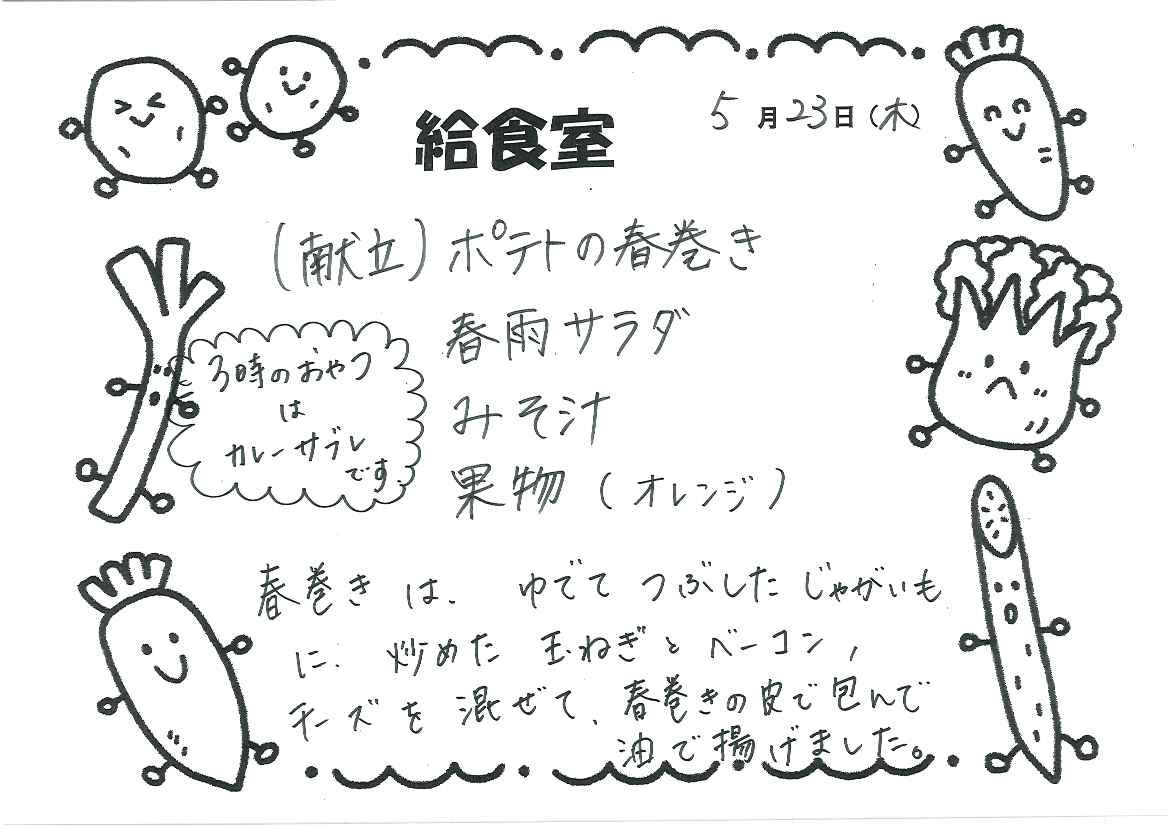 給食室
5月23日(木)
(献立)ポテトの春巻き
春雨サラダ
みそ汁
果物(オレンジ)
3時のおやつ
は
カレーサブレ
です。
春巻きは、ゆでてつぶしたじゃがいも
に、炒めた玉ねぎとベーコン、
チーズを混ぜて、春巻きの皮で包んで
油で揚げました。